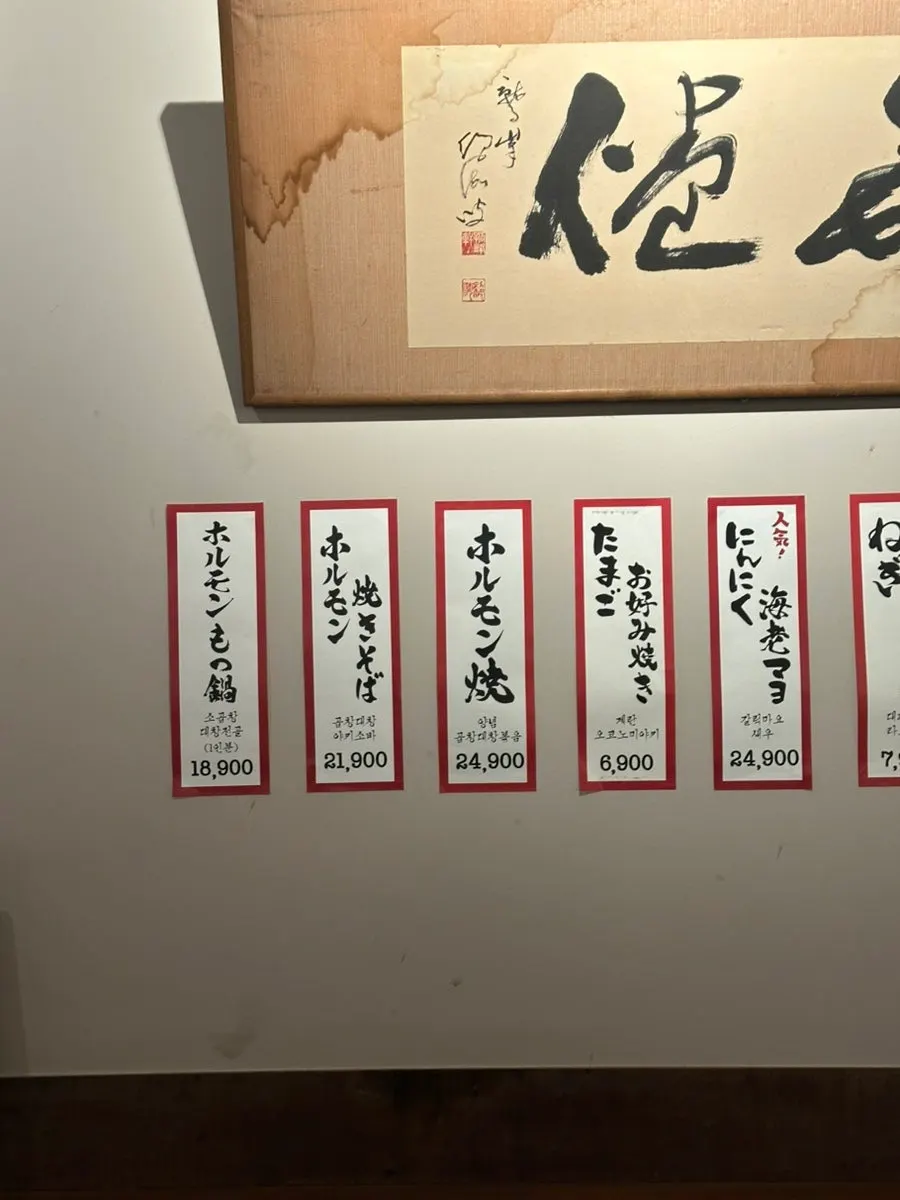 鷲峰
ホルモンもつ鍋
소곱창
대창전골
(1인분)
18,900
ホルモン
焼きそば
곱창대창
야끼소바
21,900
ホルモン焼
양념
곱창대창볶음
24,900
たまご
お好み焼き
계란
오코노미야끼
6,900
人気!
にんにく
海老マヨ
갈릭마요
새우
24,900
ねぎ